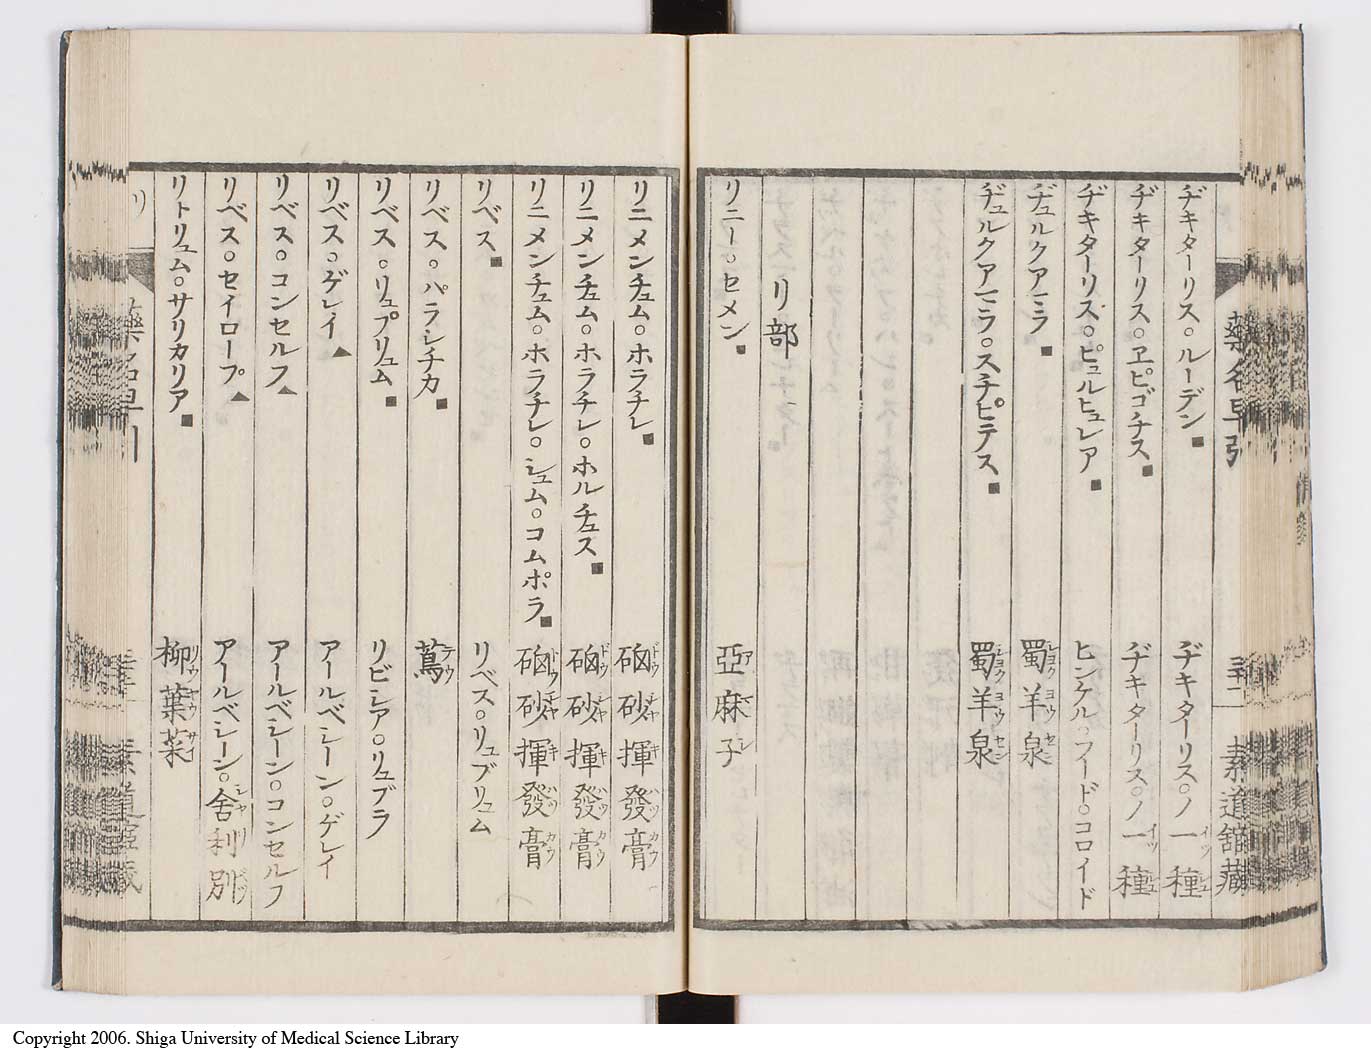 ヂキターリス○ルーデン■ ヂキターリス○ノ一種
ヂキターリス○ヱピゴチス■ ヂキターリス○ノ一種
ヂキターリス○ピュルヒュレア■ ヒンゲル○フードド○コロイド
ヂュルクアミラ■ 蜀羊泉
ヂュルクアミラ○スチピテス■ 蜀羊泉
リ部
リニー○セメン■ 亞麻子
リニメンチュム○ホラチレ■ 硇砂揮發膏
リニメンチュム○ホラチレ○ホルチュス■ 硇砂揮發膏
リニメンチュム○ホラチレ○シュム○コムポラ■ 硇砂揮發膏
リベス■ リベス○リュブリュム
リベス○パラシチカ■ 蔦
リベス○リュプリュム■ リビシア○リュブラ
リベス○ゲレイ▲ アールベシーン○ゲレイ
リベス○コンセルフ▲ アールベシーン○コンセルフ
リベス○セイロープ▲ アールベシーン○舍利別
リトリュム○サリカリア■ 柳葉菜
藥名早引
素道舘藏
Copyright 2006. Shiga University of Medical Science Library